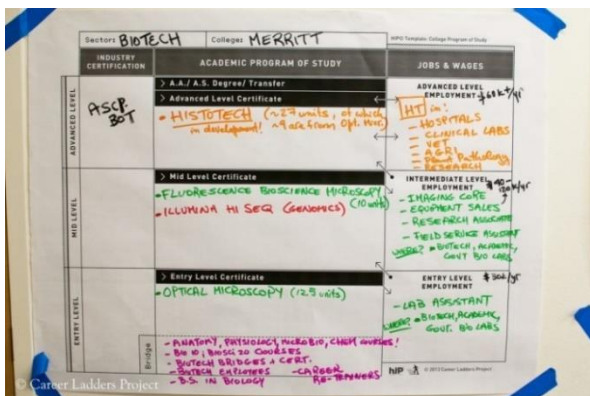 Sector: BIOTECH College: MERRITT HIPO Template: College Program of Study
INDUSTRY CERTIFICATION
ACADEMIC PROGRAM OF STUDY
JOBS & WAGES
ADVANCED LEVEL
ASCP
BOT
> A.A./ A.S. Degree/ Transfer
> Advanced Level Certificate
• HISTOTECH (~27 units, of which
in development! ~9 are from Opt. Micr.)
ADVANCED LEVEL
EMPLOYMENT $60k+/yr
HT in:
- HOSPITALS
- CLINICAL LABS
- VET
- AGRI
- Plant Pathology
- RESEARCH
MID LEVEL
> Mid Level Certificate
• FLUORESCENCE BIOSCIENCE MICROSCOPY
(10 units)
• ILLUMINA HI SEQ (GENOMICS)
INTERMEDIATE LEVEL
EMPLOYMENT
- IMAGING CORE
- EQUIPMENT SALES
- RESEARCH ASSOCIATE
- FIELD SERVICE ASSISTANT
WHERE? • BIOTECH, ACADEMIC,
GOVT BIO LABS
ENTRY LEVEL
> Entry Level Certificate
• OPTICAL MICROSCOPY (12.5 units)
ENTRY LEVEL
EMPLOYMENT $30k/yr
- LAB ASSISTANT
WHERE? • BIOTECH, ACADEMIC,
GOVT. BIO LABS
Bridge
- ANATOMY, PHYSIOLOGY, MICROBIO, CHEM COURSES!
- BIO 10, BIOSCI 20 COURSES
- BIOTECH BRIDGES + CERT.
- BIOTECH EMPLOYEES - CAREER
- B.S. IN BIOLOGY RE-TRAINERS
© 2012 Career Ladders Project
© Career Ladders Project